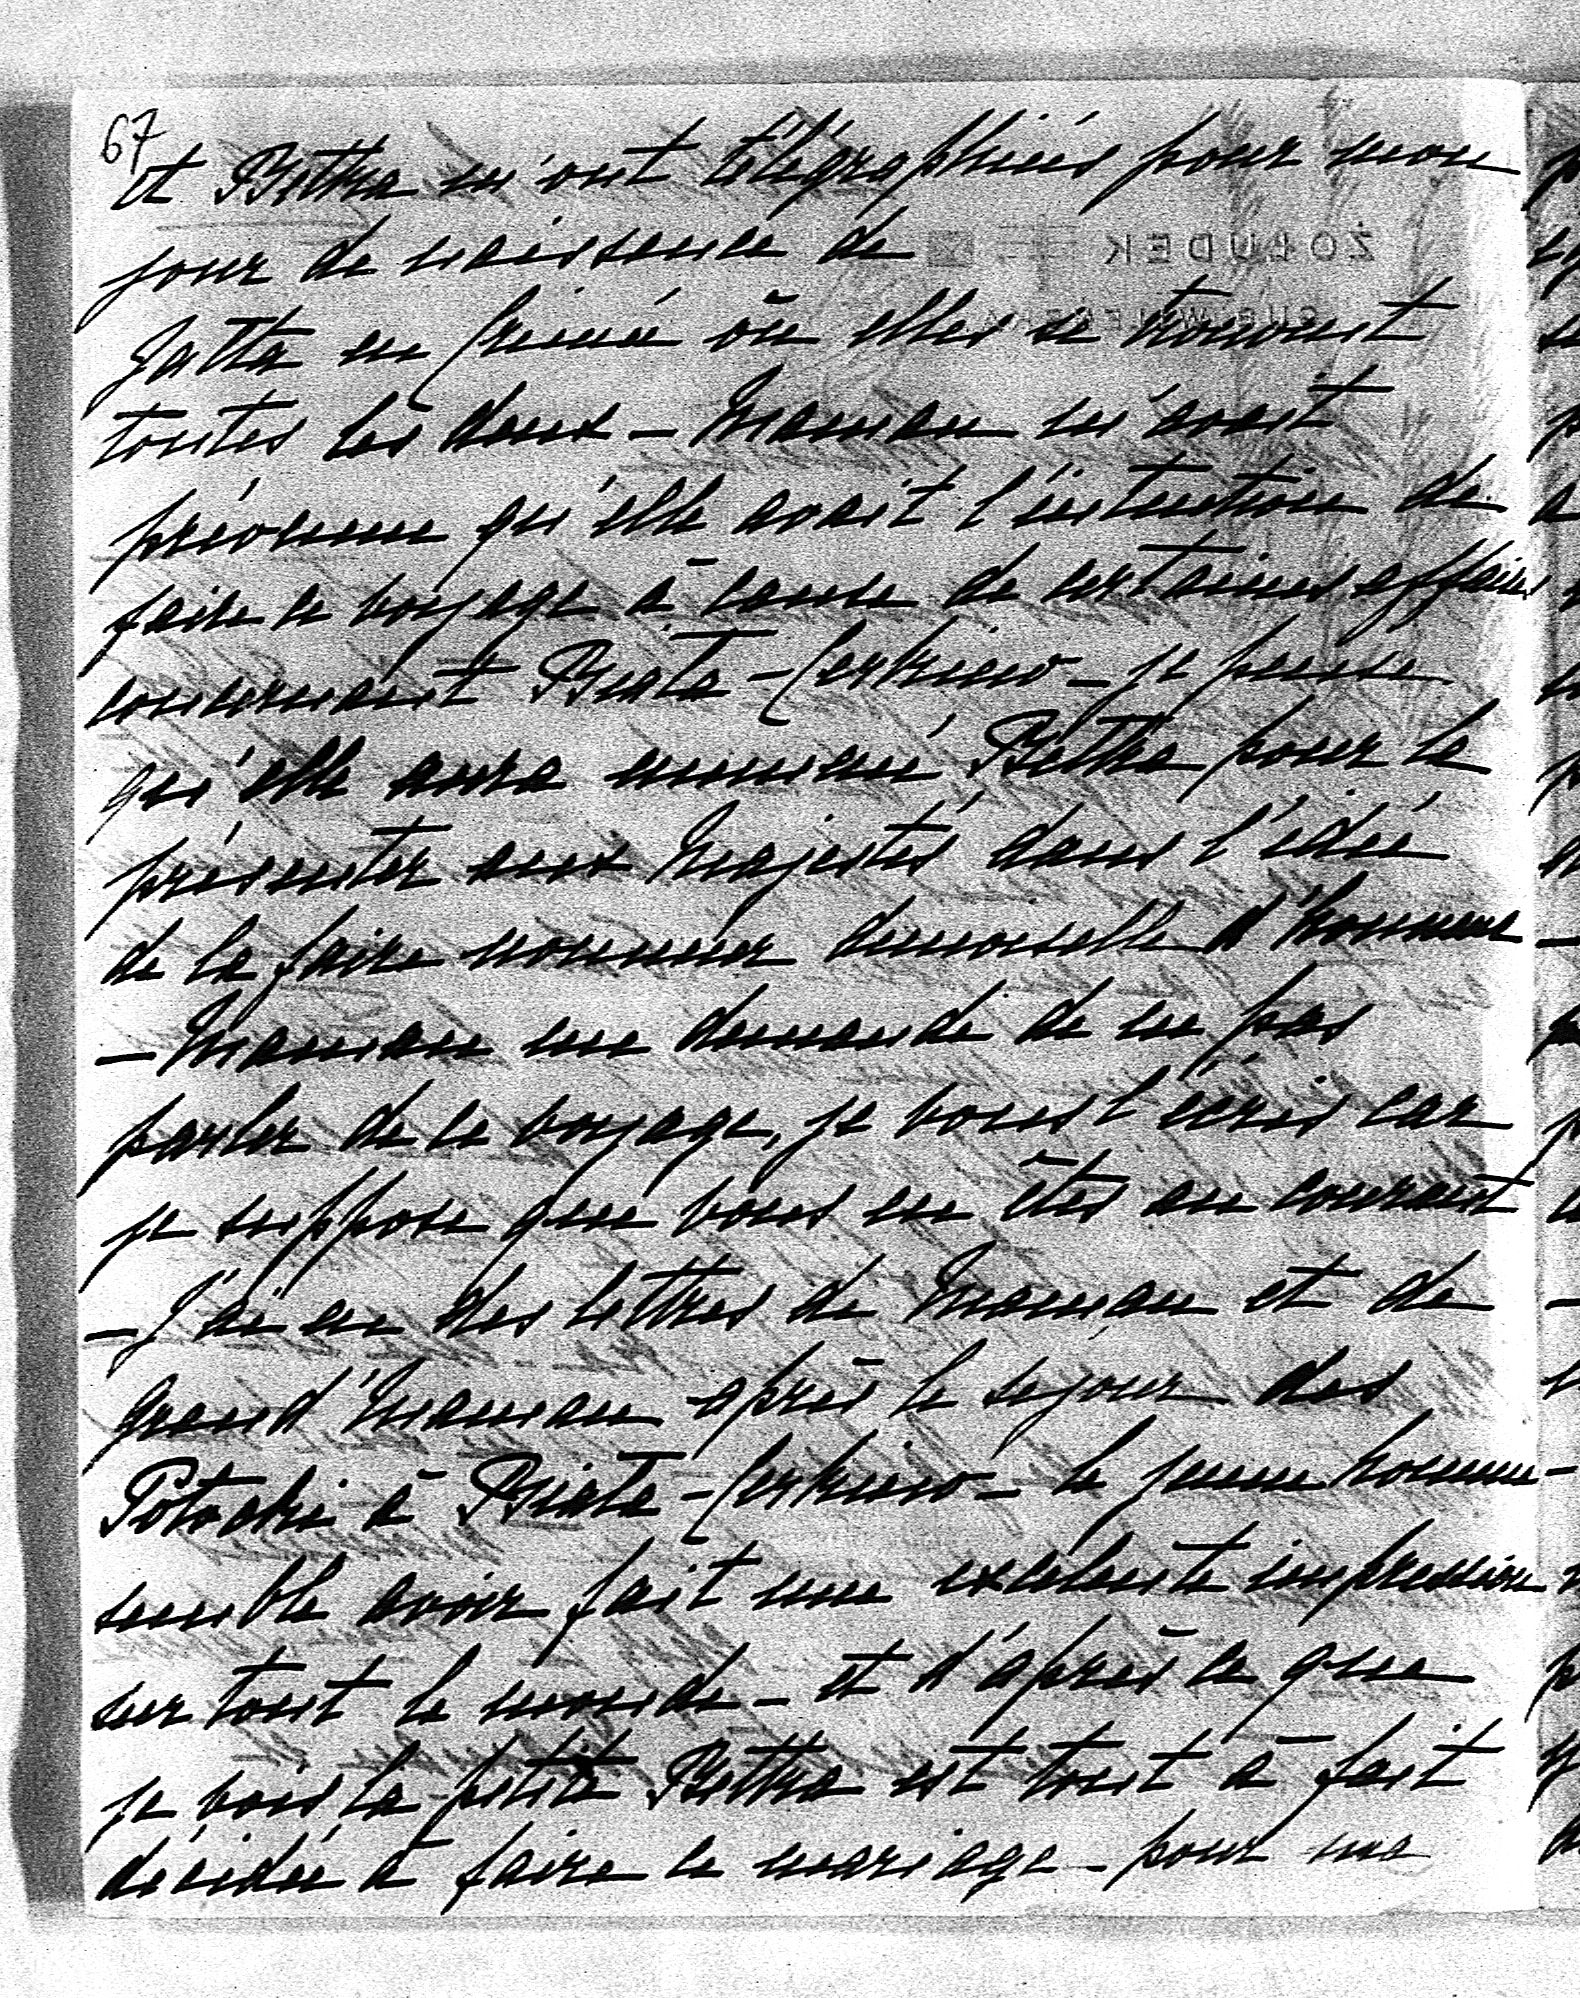 67
et Bettka m'ont télégraphiés pour mon
jour de naissance de
Jatta en Crimé où elles se trouvent
toutes les deux – Maman m'avait
prévenue qu'elle avait l'intention de
faire ce voyage à cause de certaines affaires
concernant Biała-Cerkiew – je pense
qu'elle aura emmené Bettka pour la
présenter aux Majestés dans l'idée
de la faire nommer demoiselle d'honneur
– Maman me demande de ne pas
parler de ce voyage, je vous l'écris car
je suppose que vous en êtes au courant
– J'ai eu des lettres de Maman et de
grand'Maman après le sejour des
Potocki à Biała-Cerkiew – le jeune homme
semble avoir fait une excelente impression
sur tout le monde – et d'après ce que
je vois la petite Bettka est tout à fait
décidée à faire ce mariage – pour ma
ŻOŁUDEK